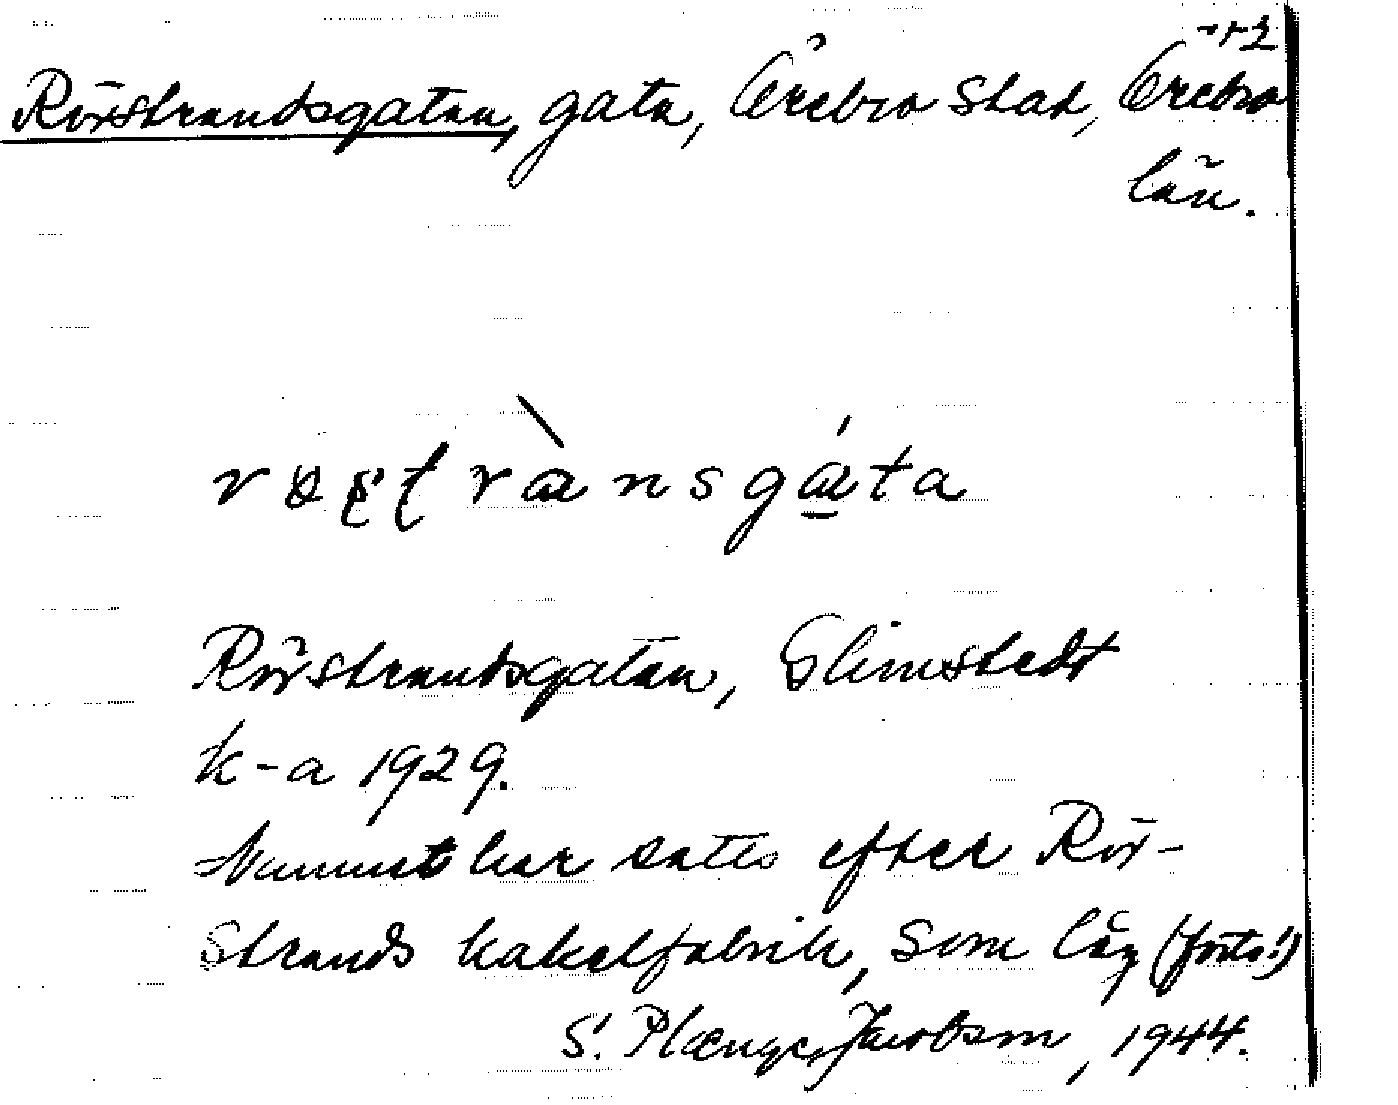 Rörstrandsgatan, gata, Örebro stad, Örebro
län.
Rörstrandsgatan, Glimstedt
k-a 1929.
Namnet har satts efter Rör-
strands kakelfabrik, som låg (forts!)
S. Plænge Jacobson, 1944.